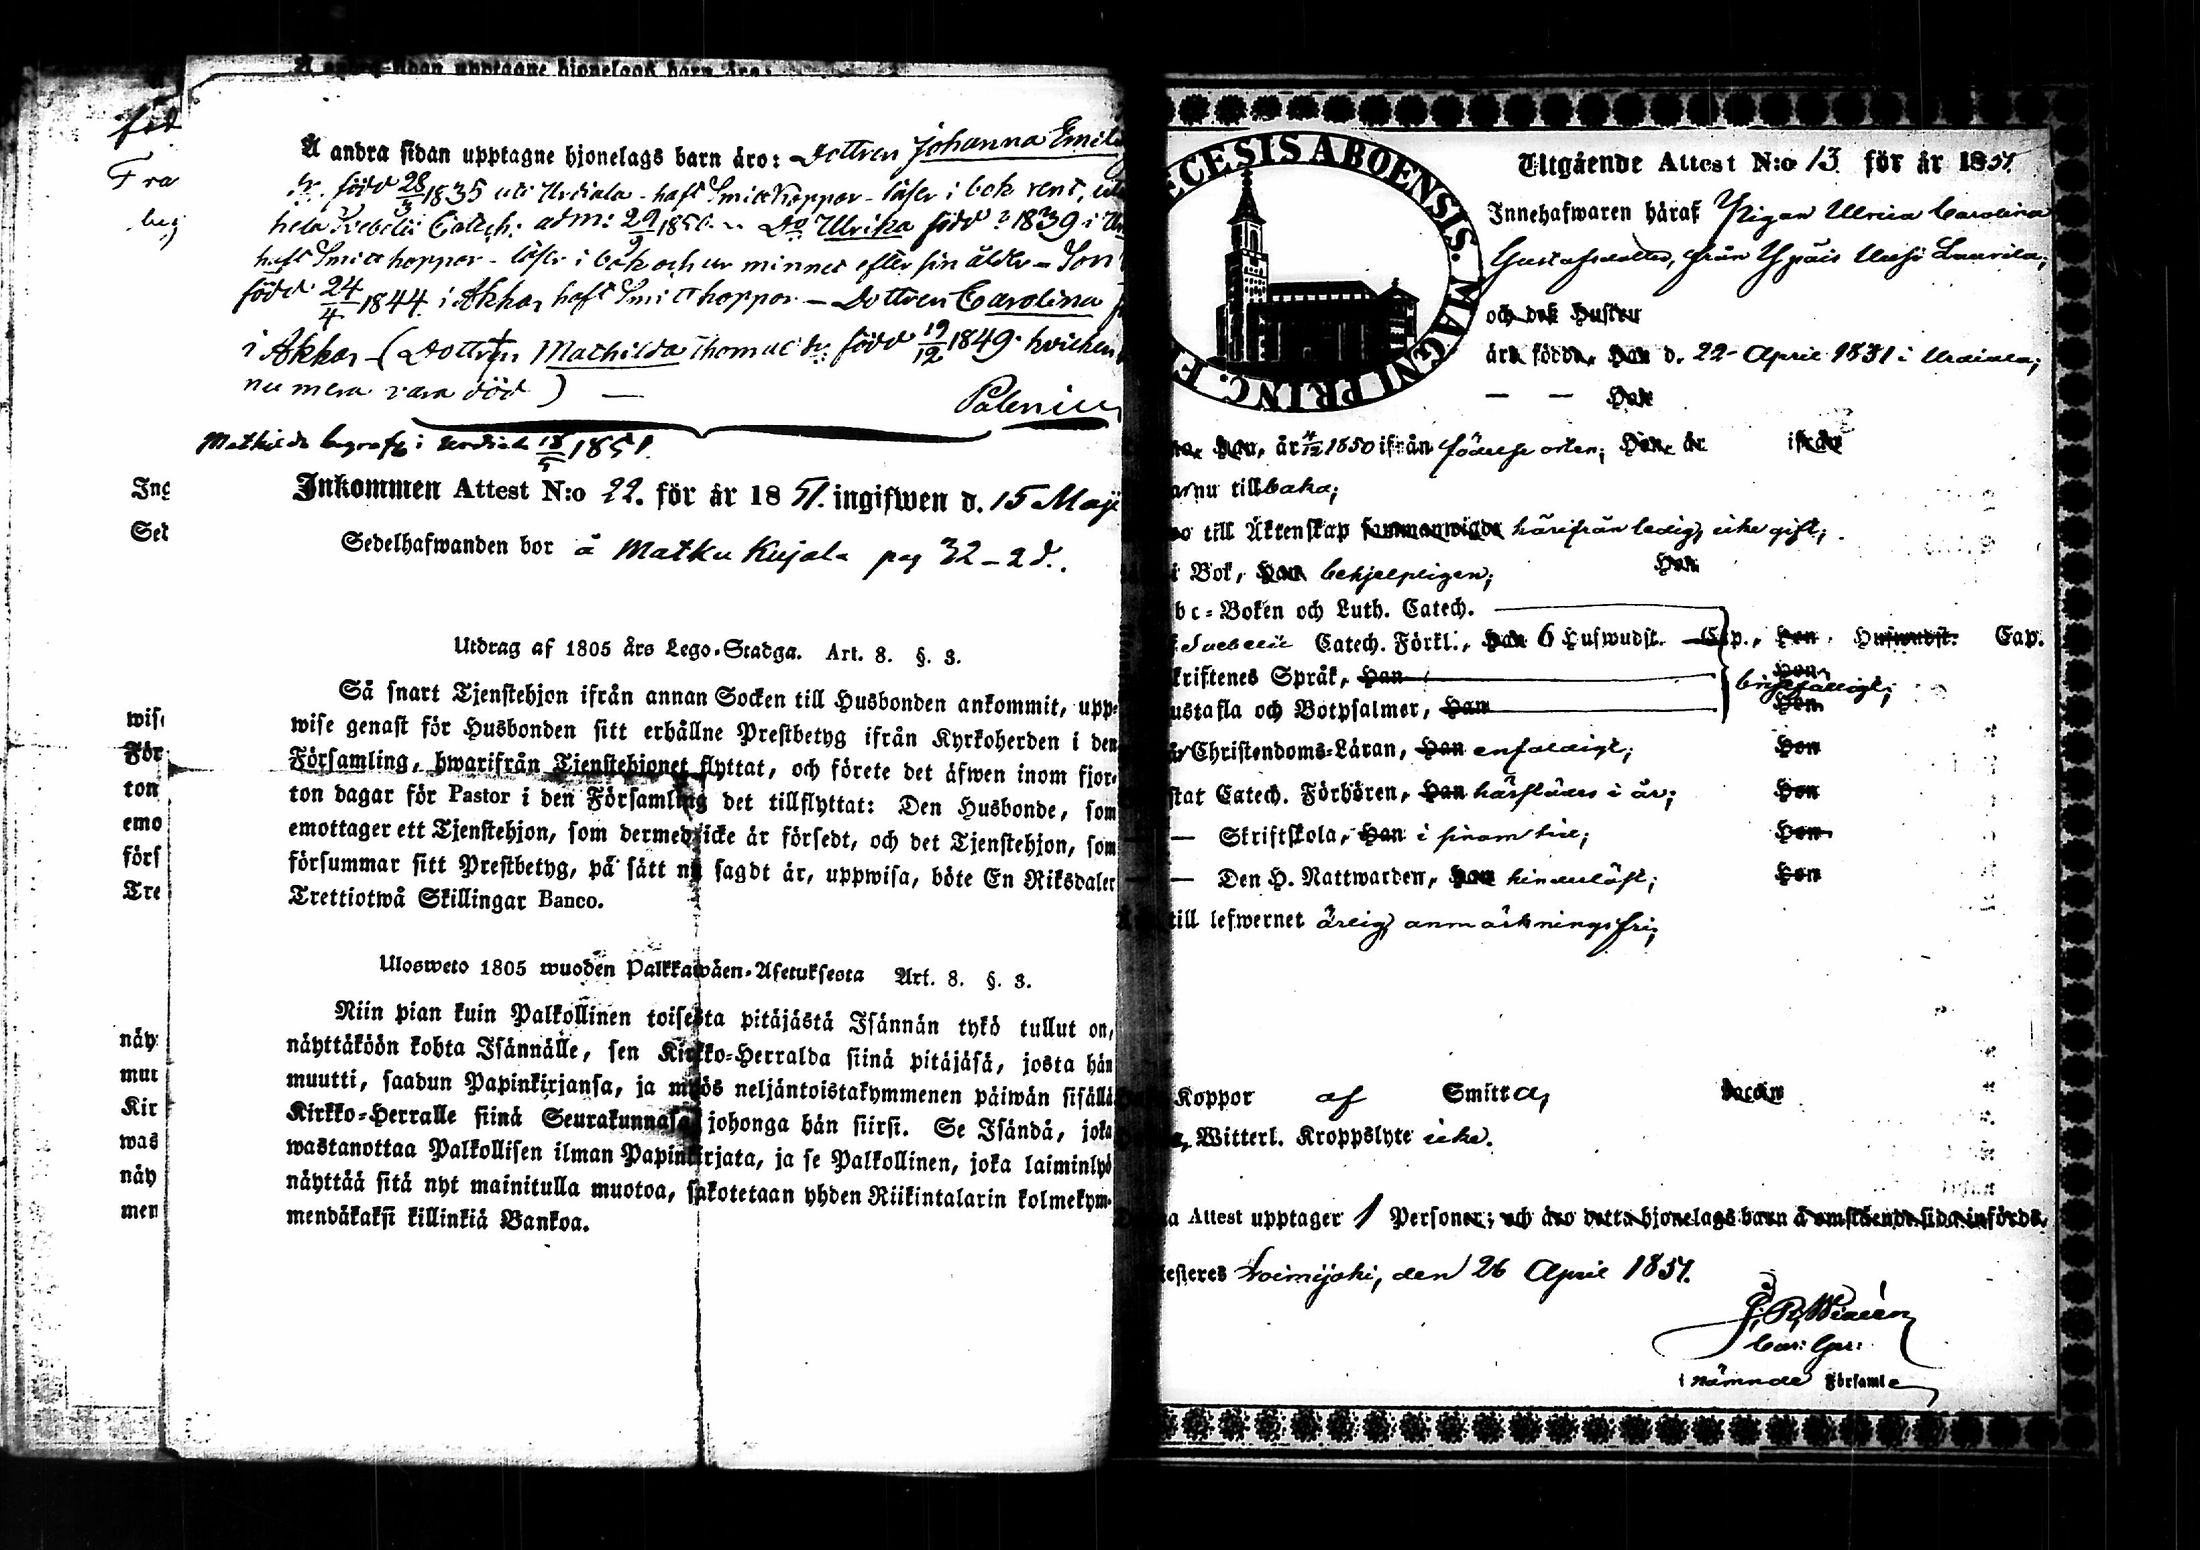 A andra sidan upptagne hjonelags barn äro:
föd
Fra
A andra sidan upptagne hjonelags barn äro: Dottren Johanna Emel
dr. född 28/3 1835 uti Urdiala - haft Smittkoppor - läser i bok rent, ut
hela Svebelii Catech: adm: 29/9 1850. - Do Ulrika född 2 1839 i Ur
haft Smittkoppor - läser i bok och ur minnet efter sin ålder - Son
född 24/4 1844 i Akkas haft Smittkoppor - Dottren Carolina f
i Akkas - (Dottren Mathilda Thomæ dr. född 19/12 1849 hvilken
nu mera vara död) -
Palenius
Mathilda begrafv: i Urdiala 18/5 1851.
Ing
Sed
Inkommen Attest N:o 22. för år 1851. ingifwen d. 15 Maji
Sedelhafwanden bor å Matku Kujala pag 32 - 2d.
Utdrag af 1805 års Lego-Stadga. Art. 8. §. 3.
Så snart Tjenstehjon ifrån annan Socken till Husbonden ankommit, upp-
wise genast för Husbonden sitt erhållne Prestbetyg ifrån Kyrkoherden i den
Församling, hwarifrån Tjenstehjonet flyttat, och förete det äfwen inom fjor-
ton dagar för Pastor i den Församling det tillflyttat: Den Husbonde, som
emottager ett Tjenstehjon, som dermed icke är försedt, och det Tjenstehjon, som
försummar sitt Prestbetyg, på sätt nu sagdt är, uppwisa, böte En Riksdaler
Trettiotwå Skillingar Banco.
wise
För
ton
emo
förs
Tre
Ulosweto 1805 wuoden Palkkawäen-Asetuksesta Art. 8. §. 3.
Niin pian kuin Palkollinen toisesta pitäjästä Isännän tykö tullut on,
näyttäköön kohta Isännälle, sen Kirkko-Herralda siinä pitäjäsä, josta hän
muutti, saadun Papinkirjansa, ja myös neljäntoistakymmenen päiwän sisällä
Kirkko-Herralle siinä Seurakunnasa, johonga hän siirsi. Se Isändä, joka
wastanottaa Palkollisen ilman Papinkirjata, ja se Palkollinen, joka laiminlyö
näyttää sitä nyt mainitulla muotoa, sakotetaan yhden Riikintalarin kolmekym-
mendäkaksi killinkiä Bankoa.
näy
mut
Kir
was
näy
men
ECESIS ABOENSIS. MAGNI PRINC. F
Utgående Attest N:o 13. för år 1851.
Innehafwaren häraf Pigan Ulrica Carolina
Gustafsdotter, från Ypäis Uusi Laurila;
och des Hustru
äro födde, Han d. 22 April 1831 i Urdiala;
— — Hon
na, Han, år 4/12 1850 ifrån födelse orten; Hon år ifrån
nu tillbaka;
till Äktenskap sammanwigde härifrån ledig, icke gift;
i Bok, Han behjelpligen; Hon
bc-Boken och Luth. Catech.
Svebelii Catech. Förkl., Han 6 Hufwudst. Cap., Hon Hufwudst. Cap.
kriftenes Språk, Han Hon
bristfälligt;
ustafla och Botpsalmer, Han Hon
Christendoms-Läran, Han enfaldigt; Hon
stat Catech. Förhören, Han härstädes i år; Hon
— Skriftskola, Han i sinom tid; Hon
— Den H. Nattwarden, Han hinderlöst; Hon
till lefwernet ärlig, anmärkningsfri;
Koppor af Smitta,
Witterl. Kroppslyte icke.
na Attest upptager 1 Personer; och äro detta hjonelags barn å omstående sida införde.
testeres Loimijoki, den 26 April 1851.
i nämnde Församl